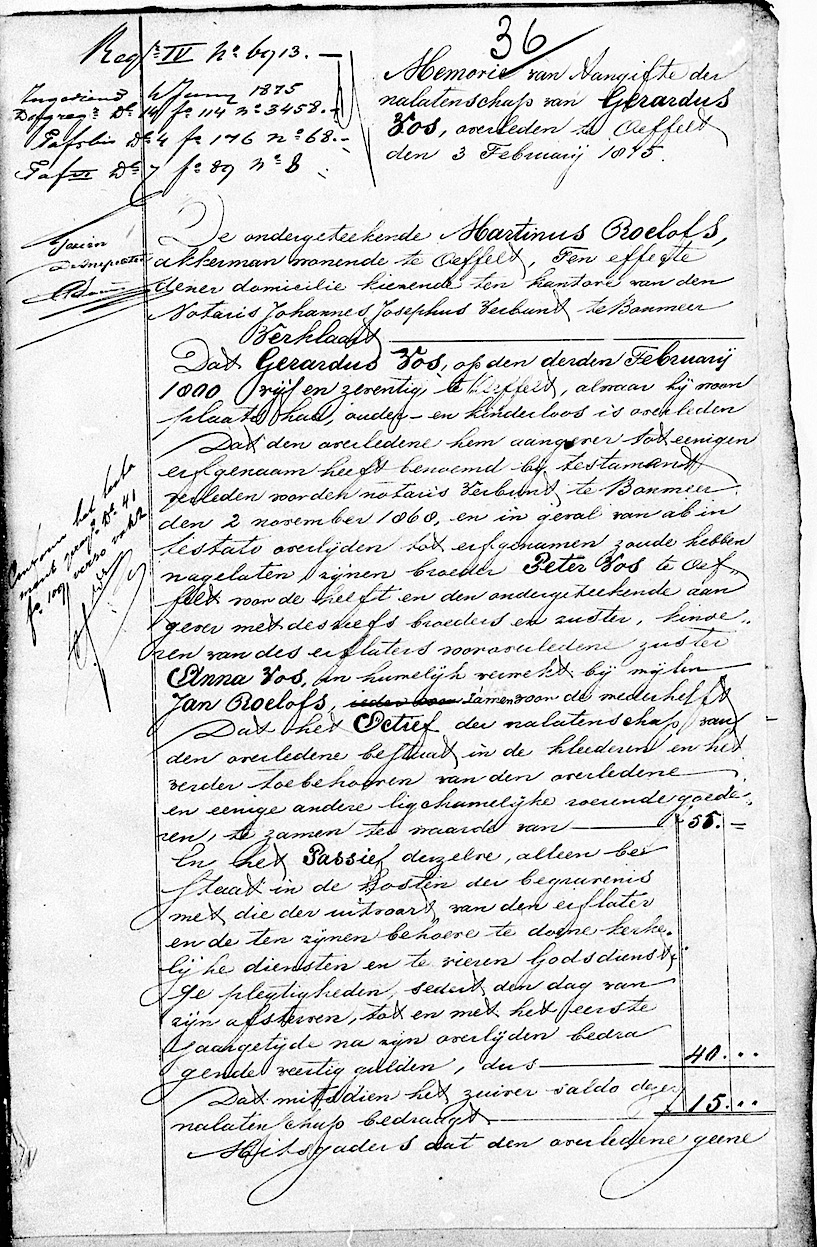 36
Regr IV no 6913.
Ingediend 4 Juny 1875
Dagregr Dl 14 fo 114 no 3458.
Tafel bis Dl 4 fo 176 no 68.
Taf VI Dl 7 fo 89 no 8
Memorie van Aangifte der
nalatenschap van Gerardus
Vos, overleden te Oeffelt
den 3 Februarij 1875.
De ondergeteekende Martinus Roelofs,
akkerman wonende te Oeffelt, Ten effecte
dezer domicilie kiezende ten kantore van den
Notaris Johannes Josephus Verbunt te Boxmeer
Verklaart
Dat Gerardus Vos, op den derden Februarij
1800 vijf en zeventig te Oeffelt, alwaar hij woon
plaats had, ouder- en kinderloos is overleden
Dat den overledene hem aangever tot eenigen
erfgenaam heeft benoemd bij testament
verleden voor den notaris Verbunt te Boxmeer
den 2 november 1868, en in geval van ab in
testato overlijden tot erfgenamen zoude hebben
nagelaten zijnen broeder Peter Vos te Oef
felt voor de helft en den ondergeteekende aan
gever met deszelfs broeders en zuster, kinde
ren van des erflaters vooroverledene zuster
Anna Vos, in humelijk verwekt bij wijlen
Jan Roelofs, samen voor de wederhelft
Dat het Actief der nalatenschap van
den overledene bestaat in de kleederen en het
verder toebehooren van den overledene
en eenige andere ligchamelijke roerende goede
ren, te zamen ter waarde van f 55.
En het Passief derzelve, alleen be
staat in de kosten der begravenis
met die der uitvaart van den erflater
en de ten zijnen behoeve te doene kerke
lijke diensten en te vieren Godsdiensti
ge plegtigheden, sedert den dag van
zijn afsterven, tot en met het eerste
jaargetijde na zijn overlijden bedra
gende veertig gulden, dus 40...
Dat mitsdien het zuiver saldo dezer
nalatenschap bedraagt f 15...
Mitsgaders dat den overledene geene
Conform het testa
ment gereg Dl 41
fo 109 verso vak 2